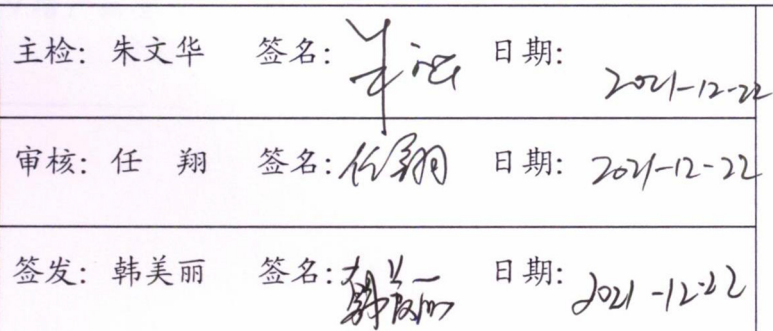 主检: 朱文华 签名: 日期: 2021-12-22
审核: 任 翔 签名: 任翔 日期: 2021-12-22
签发: 韩美丽 签名: 韩美丽 日期: 2021-12-22